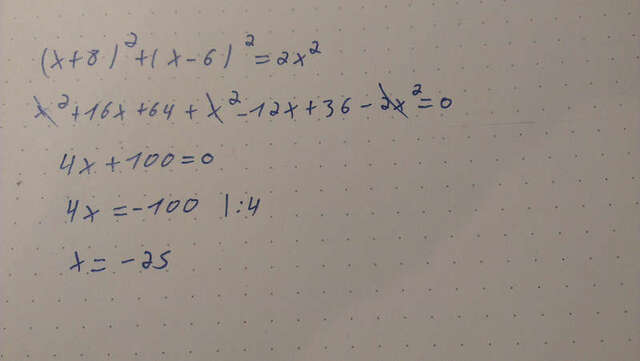 (x+8)²+(x-6)²=2x²
x²+16x+64+x²-12x+36-2x²=0
4x+100=0
4x=-100 |:4
x=-25